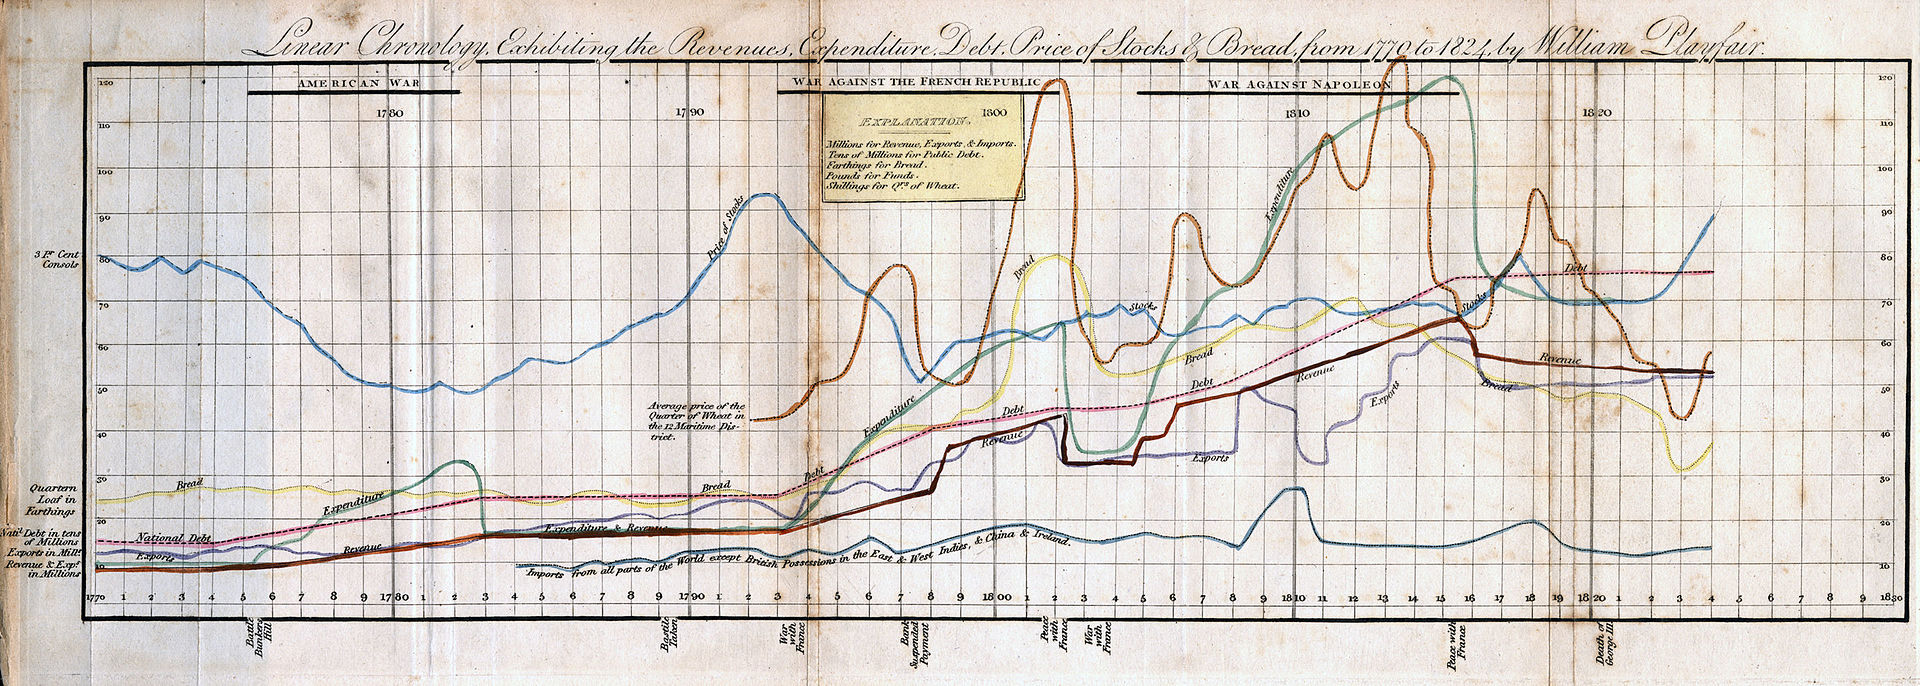 Linear Chronology, Exhibiting the Revenues, Expenditure, Debt, Price of Stocks & Bread, from 1770 to 1824, by William Playfair.
AMERICAN WAR
WAR AGAINST THE FRENCH REPUBLIC
WAR AGAINST NAPOLEON
1780
1790
1800
1810
1820
EXPLANATION.
Millions for Revenue, Exports, & Imports.
Tens of Millions for Public Debt.
Farthings for Bread.
Pounds for Funds.
Shillings for Qrs of Wheat.
120
110
100
90
80
70
60
50
40
30
20
10
3 Pr Cent
Consols
Quartern
Loaf in
Farthings
Natl Debt in tens
of Millions
Exports in Mills
Revenue & Expe
in Millions
Price of Stocks
Average price of the
Quarter of Wheat in
the 12 Maritime Dis-
trict.
Bread
Expenditure
National Debt
Exports
Revenue
Bread
Expenditure & Revenue
Imports from all parts of the World except British Possessions in the East & West Indies, & China & Ireland.
Debt
Expenditure
Bread
Debt
Revenue
Stocks
Bread
Debt
Exports
Revenue
Expenditure
Exports
Stocks
Bread
Debt
Revenue
120
110
100
90
80
70
60
50
40
30
20
10
1770 1 2 3 4 5 6 7 8 9 1780 1 2 3 4 5 6 7 8 9 1790 1 2 3 4 5 6 7 8 9 1800 1 2 3 4 5 6 7 8 9 1810 11 12 13 14 15 16 17 18 19 1820 1 2 3 4 5 6 7 8 9 1830
Battle
Bunkers
Hill
Bastile
Taken
War
with
France
Bank
Suspended
Payment
Peace
with
France
War
with
France
Peace with
France
Death of
George III